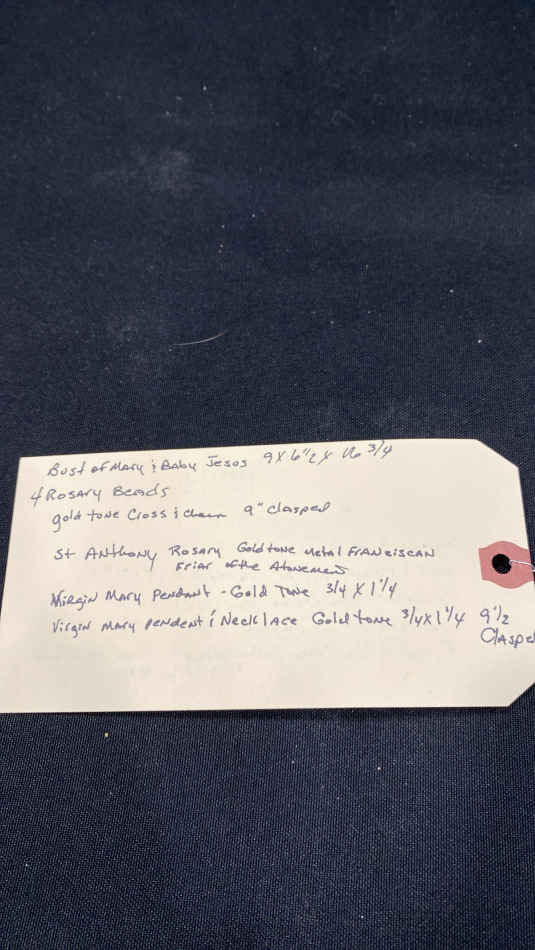 Bust of Mary & Baby Jesos 9 X 6 1/2 X 16 3/4
4 Rosary Beads
gold tone Cross & chain 9" clasped
St Anthony Rosary Gold tone metal FRANCISCAN
Friar of the Atonement
Virgin Mary Pendant - Gold Tone 3/4 X 1 1/4
Virgin Mary Pendent & Necklace Gold tone 3/4 X 1 1/4 9 1/2
Clasped